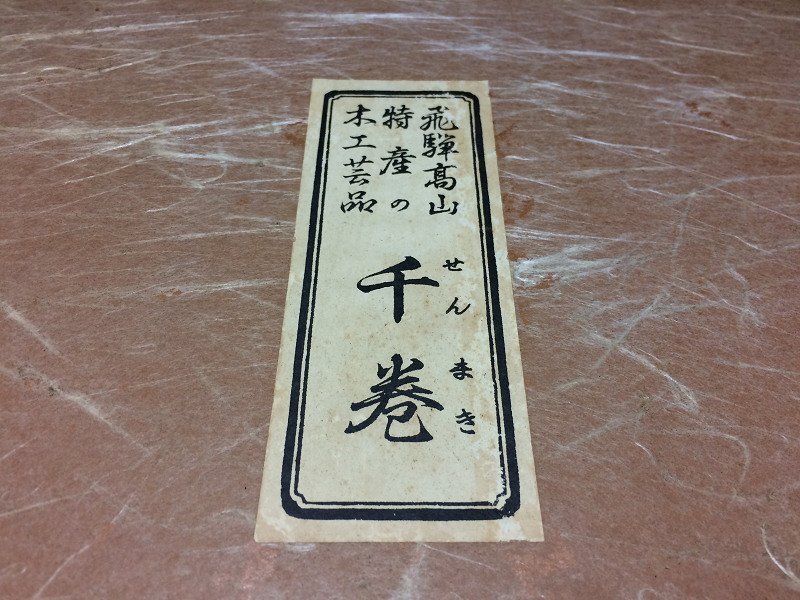 飛騨高山
特産の
木工芸品
千巻
せんまき